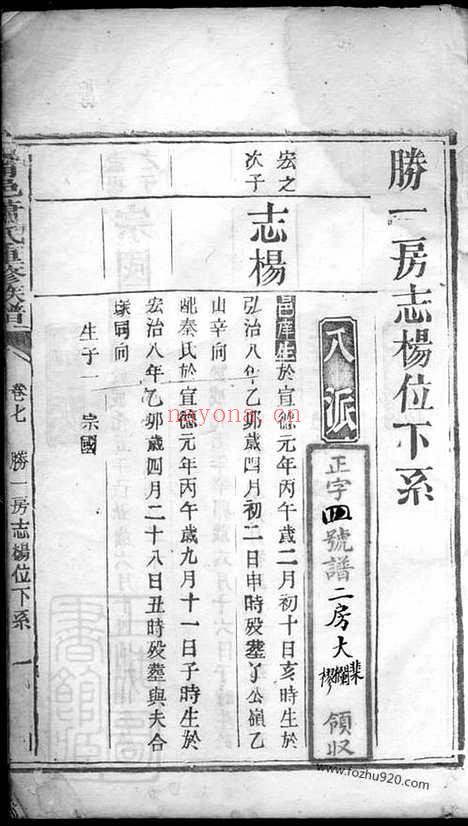 勝一房志楊位下系
八派
正字四號譜二房大
領收
宏之
次子
志楊
邑庠生於宣德元年丙午歲二月初十日亥時生於
弘治八年乙卯歲四月初二日申時歿塟了公嶺乙
山辛向
配秦氏於宣德元年丙午歲九月十一日子時生於
宏治八年乙卯歲四月二十八日丑時歿塟與夫合
塚同向
生子一 宗國
氏重修族譜
卷七 勝一房志楊位下系 一
nayona.cn
www.fozhu920.com